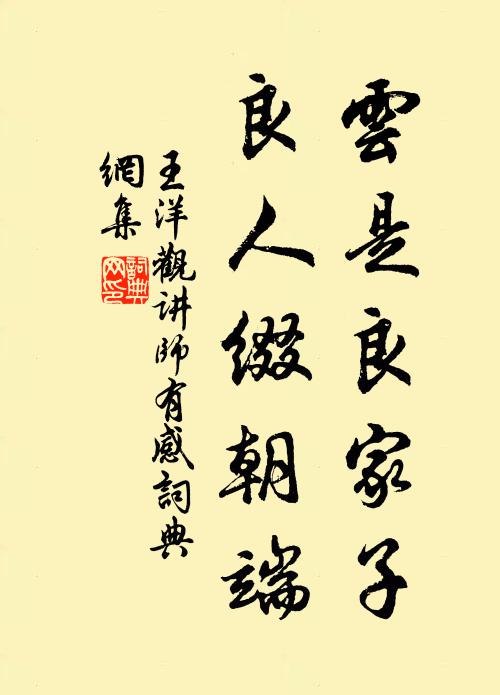 雲是良家子
良人缀朝端
王洋觀讲師有感詞典
網集
詞典網印